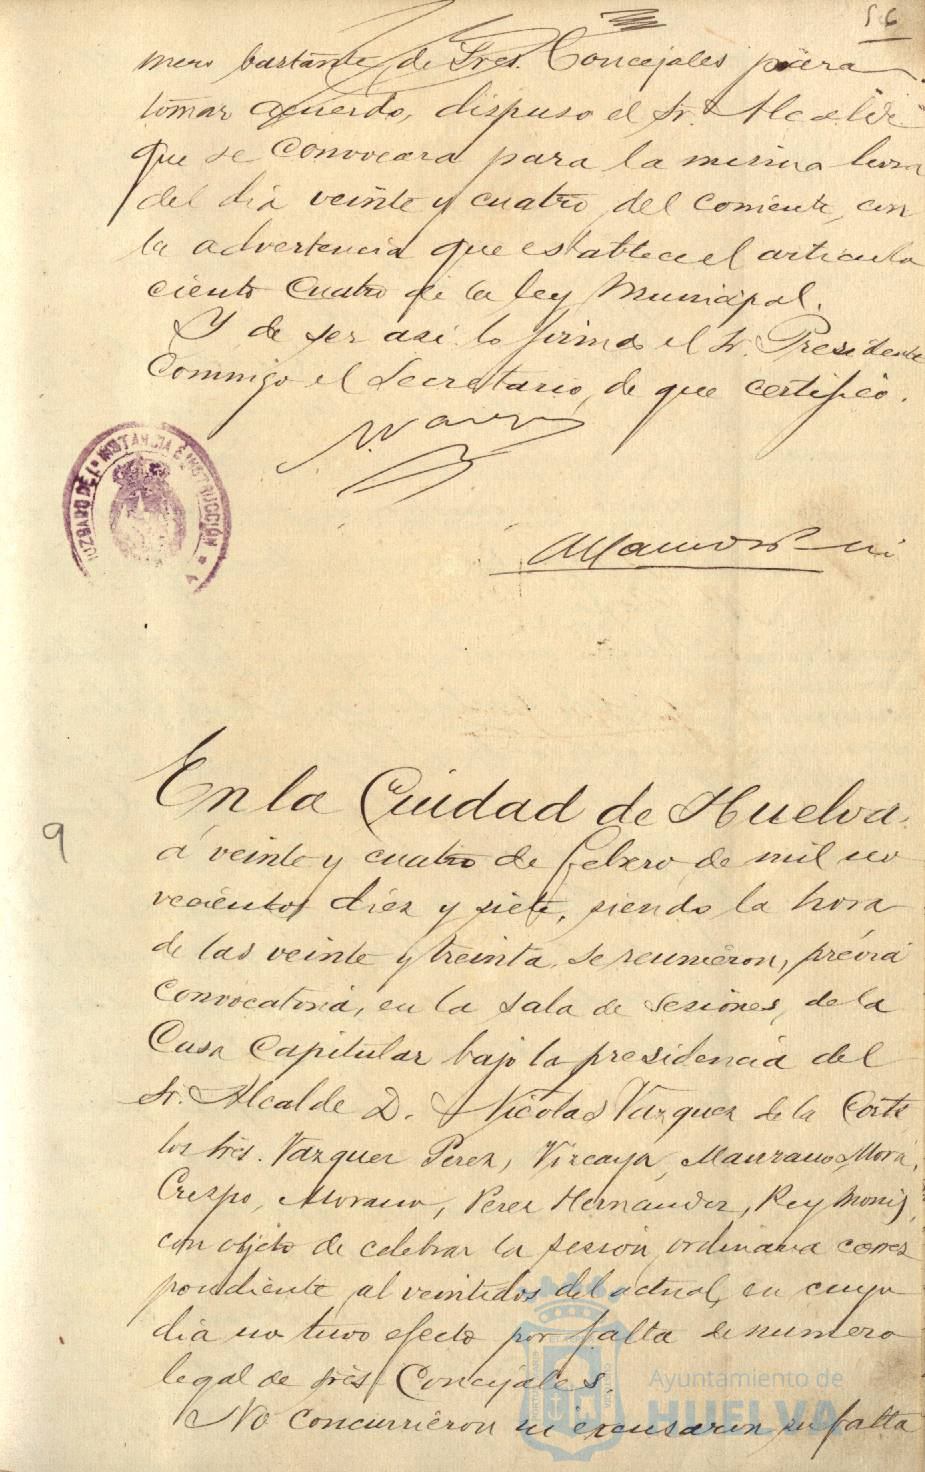 56
mero bastante de Sres. Concejales para
tomar acuerdo, dispuso el Sr. Alcalde
que se convocara para la misma hora
del dia veinte y cuatro del corriente, con
la advertencia que establece el articulo
ciento cuatro de la ley Municipal.
Y de ser asi lo firma el Sr. Presidente
conmigo el Secretario, de que certifico.
JUZGADO DE 1ª INSTANCIA É INSTRUCCIÓN
En la Ciudad de Huelva
9
á veinte y cuatro de febrero de mil no
vecientos diez y siete, siendo la hora
de las veinte y treinta, se reunieron, prévia
convocatoria, en la sala de sesiones, de la
Casa Capitular bajo la presidencia del
Sr. Alcalde D. Nicolas Vazquez de la Corte
los Sres. Vazquez Perez, Vizcaya, Manzano, Mora,
Crespo, Morano, Perez Hernandez, Rey Moniz,
con objeto de celebrar la sesion ordinaria corres
pondiente al veintidos del actual, en cuyo
dia no tuvo efecto por falta de numero
legal de Sres Concejales.
No concurrieron ni excusaron su falta
Ayuntamiento de
HUELVA